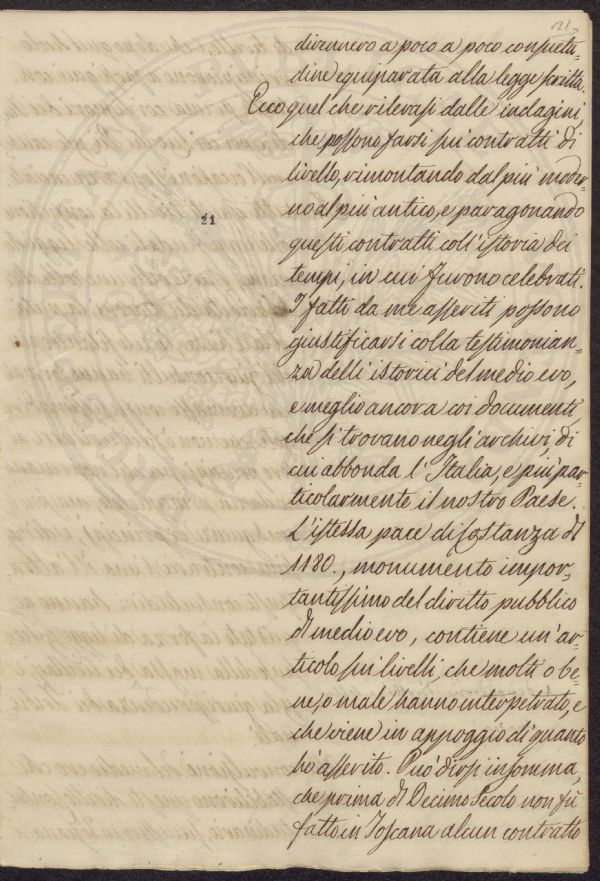 21.
divennero a poco a poco consuetu-
dine equiparata alla legge scritta.
Ecco quel che rilevasi dalle indagini,
che possono farsi sui contratti di
livello, rimontando dal più moder-
no al più antico, e paragonando
questi contratti coll'istoria dei
tempi, in cui furono celebrati.
I fatti da me asseriti possono
giustificarsi colla testimonian-
za delli istorici del medio evo,
e meglio ancora coi documenti,
che si trovano negli archivi, di
cui abbonda l'Italia, e più par-
ticolarmente il nostro Paese.
L'istessa pace di Costanza di
1180., monumento impor-
tantissimo del diritto pubblico
di medio evo, contiene un'ar-
ticolo sui livelli, che molti o be-
ne, o male hanno interpetrato, e
che viene in appoggio di quanto
hò asserito. Può dirsi insomma,
che prima di Decimo Secolo non fù
fatto in Toscana alcun contratto
21